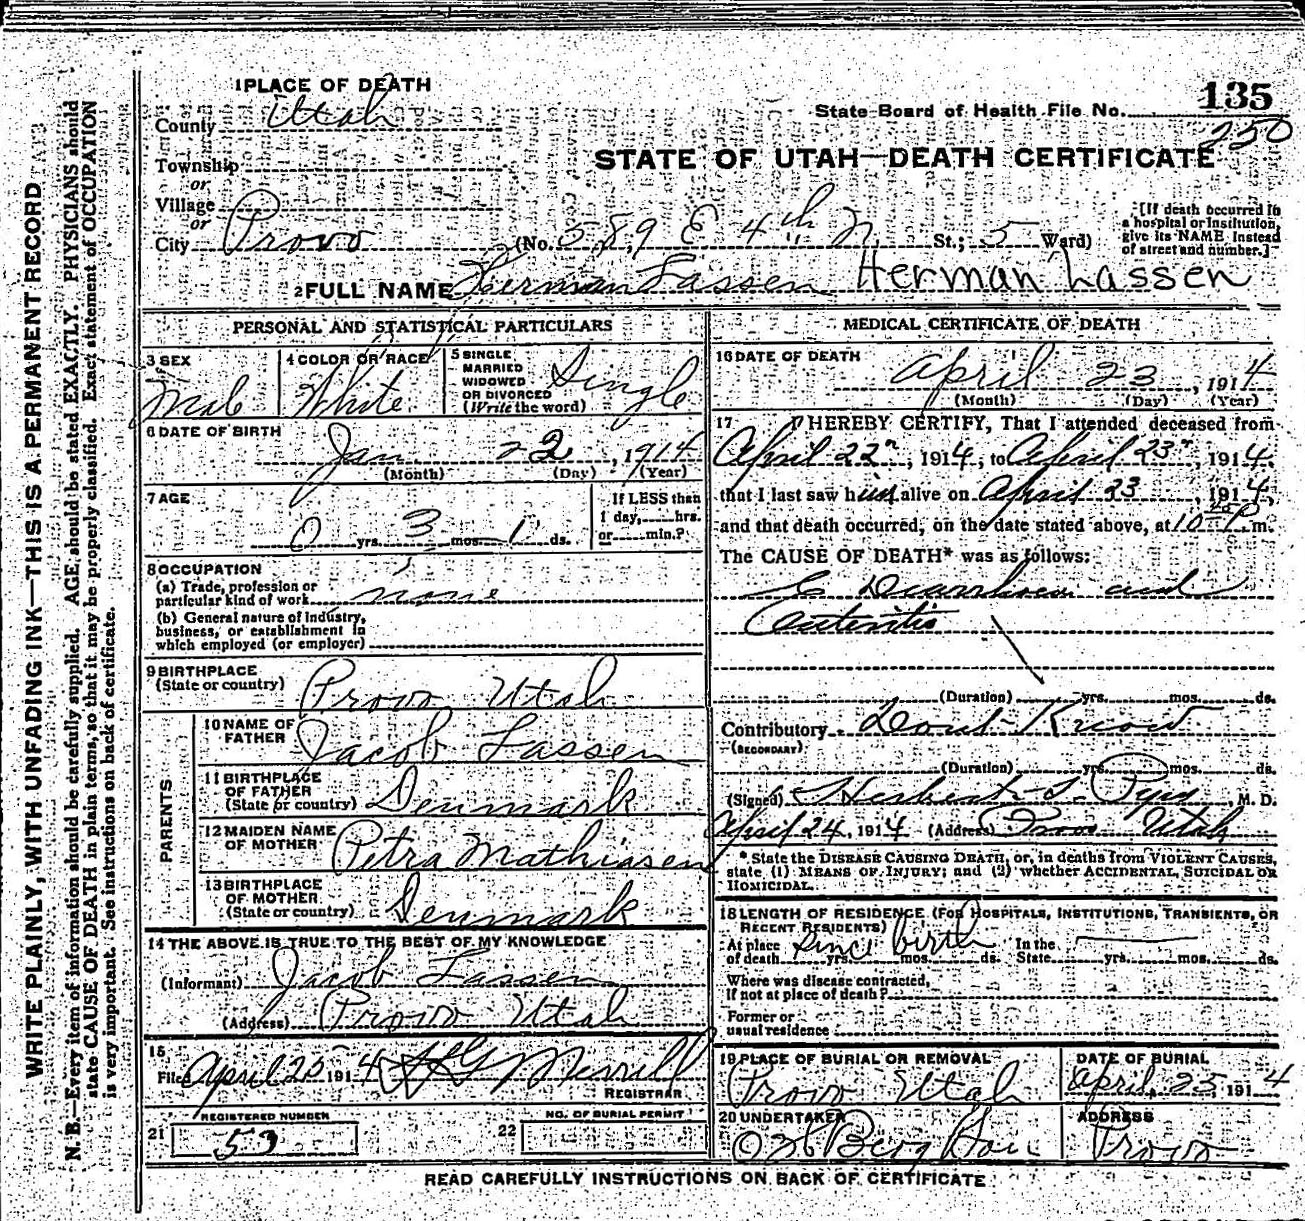 1 PLACE OF DEATH
County Utah
State Board of Health File No. 135
250
Township
or
STATE OF UTAH—DEATH CERTIFICATE
Village
or
City Provo (No. 589 E 4th N. St.; 5 Ward)
[If death occurred in
a hospital or institution,
give its NAME instead
of street and number.]
2 FULL NAME Herman Lassen Herman Lassen
PERSONAL AND STATISTICAL PARTICULARS
3 SEX
Male
4 COLOR OR RACE
White
5 SINGLE
MARRIED
WIDOWED
OR DIVORCED
(Write the word)
Single
6 DATE OF BIRTH
Jan 22, 1914
(Month) (Day) (Year)
7 AGE
0 yrs. 3 mos. 1 ds.
If LESS than
1 day, hrs.
or min.?
8 OCCUPATION
(a) Trade, profession or
particular kind of work none
(b) General nature of industry,
business, or establishment in
which employed (or employer)
9 BIRTHPLACE
(State or country) Provo Utah
PARENTS
10 NAME OF
FATHER Jacob Lassen
11 BIRTHPLACE
OF FATHER
(State or country) Denmark
12 MAIDEN NAME
OF MOTHER Petra Mathiasen
13 BIRTHPLACE
OF MOTHER
(State or country) Denmark
14 THE ABOVE IS TRUE TO THE BEST OF MY KNOWLEDGE
(Informant) Jacob Lassen
(Address) Provo Utah
15
Filed April 25 1914 Merrill
REGISTRAR
REGISTERED NUMBER
21 53
NO. OF BURIAL PERMIT
22
MEDICAL CERTIFICATE OF DEATH
16 DATE OF DEATH
April 23, 1914
(Month) (Day) (Year)
17 I HEREBY CERTIFY, That I attended deceased from
April 22, 1914, to April 23, 1914,
that I last saw him alive on April 23, 1914,
and that death occurred, on the date stated above, at 10 P.m.
The CAUSE OF DEATH* was as follows:
Diarrhoea and
Enteritis
(Duration) yrs. mos. ds.
Contributory Dont Know
(SECONDARY)
(Duration) yrs. mos. ds.
(Signed) Herbert S. Pyne, M. D.
April 24, 1914 (Address) Provo Utah
* State the DISEASE CAUSING DEATH, or, in deaths from VIOLENT CAUSES,
state (1) MEANS OF INJURY; and (2) whether ACCIDENTAL, SUICIDAL OR
HOMICIDAL.
18 LENGTH OF RESIDENCE (FOR HOSPITALS, INSTITUTIONS, TRANSIENTS, OR
RECENT RESIDENTS)
At place of death since birth yrs. mos. ds. In the State yrs. mos. ds.
Where was disease contracted,
If not at place of death?
Former or
usual residence
19 PLACE OF BURIAL OR REMOVAL
Provo Utah
DATE OF BURIAL
April, 25, 1914
20 UNDERTAKER
Berg
ADDRESS
Provo
READ CAREFULLY INSTRUCTIONS ON BACK OF CERTIFICATE
WRITE PLAINLY, WITH UNFADING INK—THIS IS A PERMANENT RECORD
N. B.—Every item of information should be carefully supplied. AGE should be stated EXACTLY. PHYSICIANS should
state CAUSE OF DEATH in plain terms, so that it may be properly classified. Exact statement of OCCUPATION
is very important. See instructions on back of certificate.